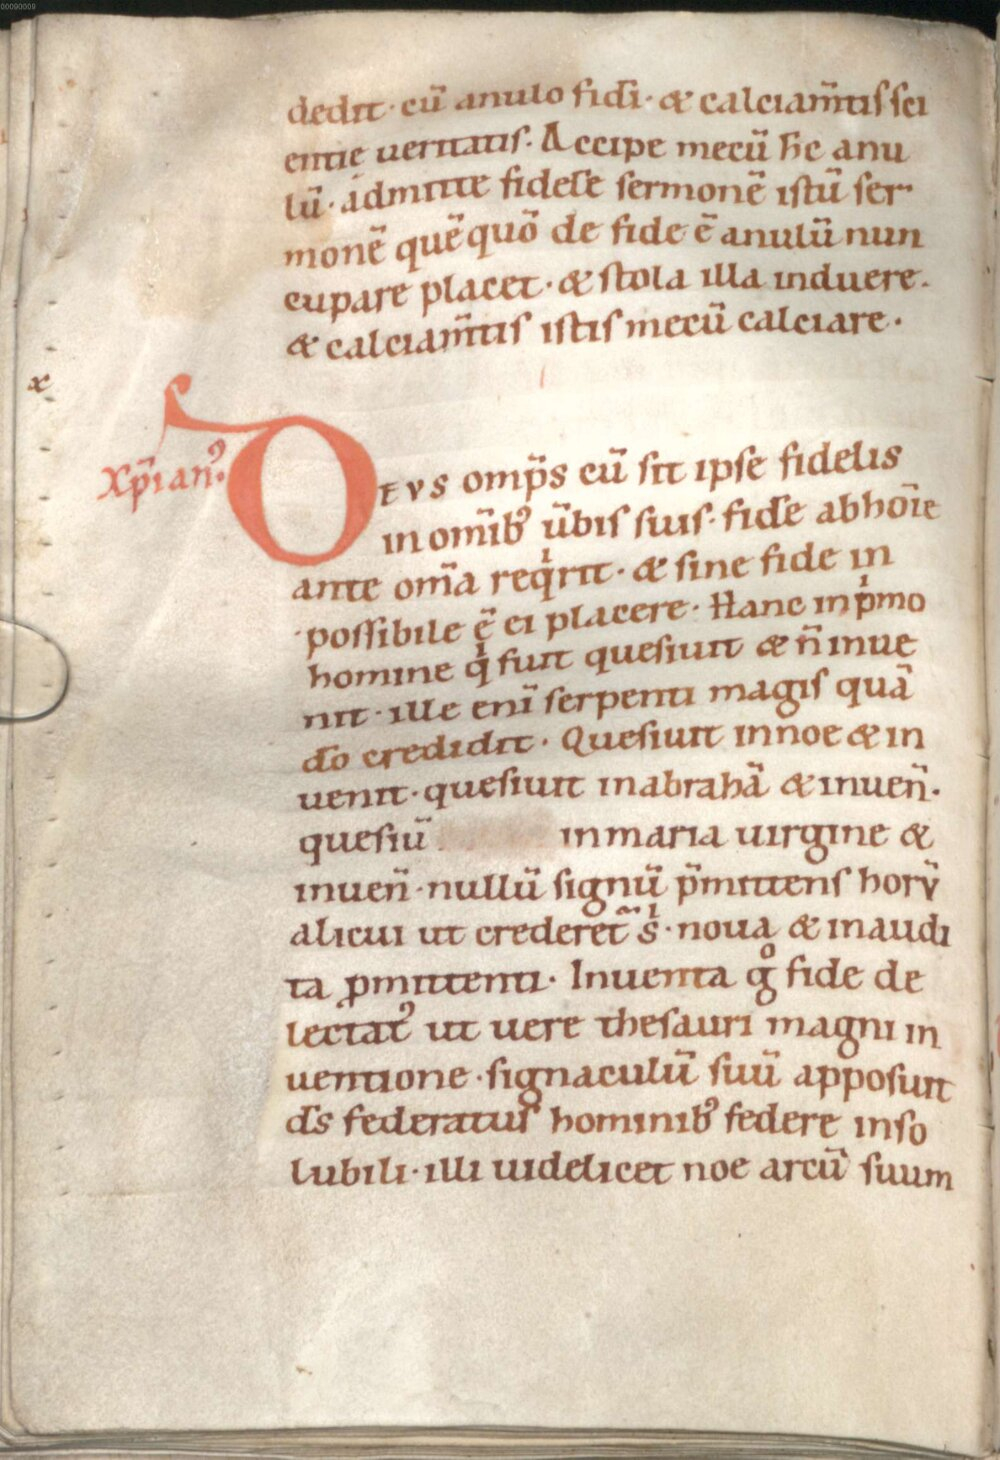 00090009
dedit· cū anulo fidi· & calciam̄tis sci
entie ueritatis. Accipe mecū hc anu
lū· admitte fidele sermonē istū ser
monē quē quō de fide ē anulū nun
cupare placet· & stola illa induere.
& calciam̄tis istis mecū calciare·
Xp̄ianꝰ.
Devs omp̄s cū sit ipse fidelis
in om̄ibꝰ ūbis suis· fide ab hōie
ante om̄a reqͥrit· & sine fide in
possibile ē ei placere· Hanc in pͥmo
homine qͥ fuit quesiuit & n̄ inue
nit· ille enī serpenti magis quā
do credidit· Quesiuit in noe & in
uenit· quesiuit in abrahā & inuen̄·
quesiū in maria uirgine &
inuen̄· nullū signū p̄mittens horꝝ
alicui ut crederet̄ sͥ· noua & inaudi
ta ꝓmittenti· Inuenta gͦ fide de
lectatꝰ ut uere thesauri magni in
uentione· signaculū suū apposuit
ds̄ federatus hominibꝰ federe inso
lubili· illi uidelicet noe arcū suum